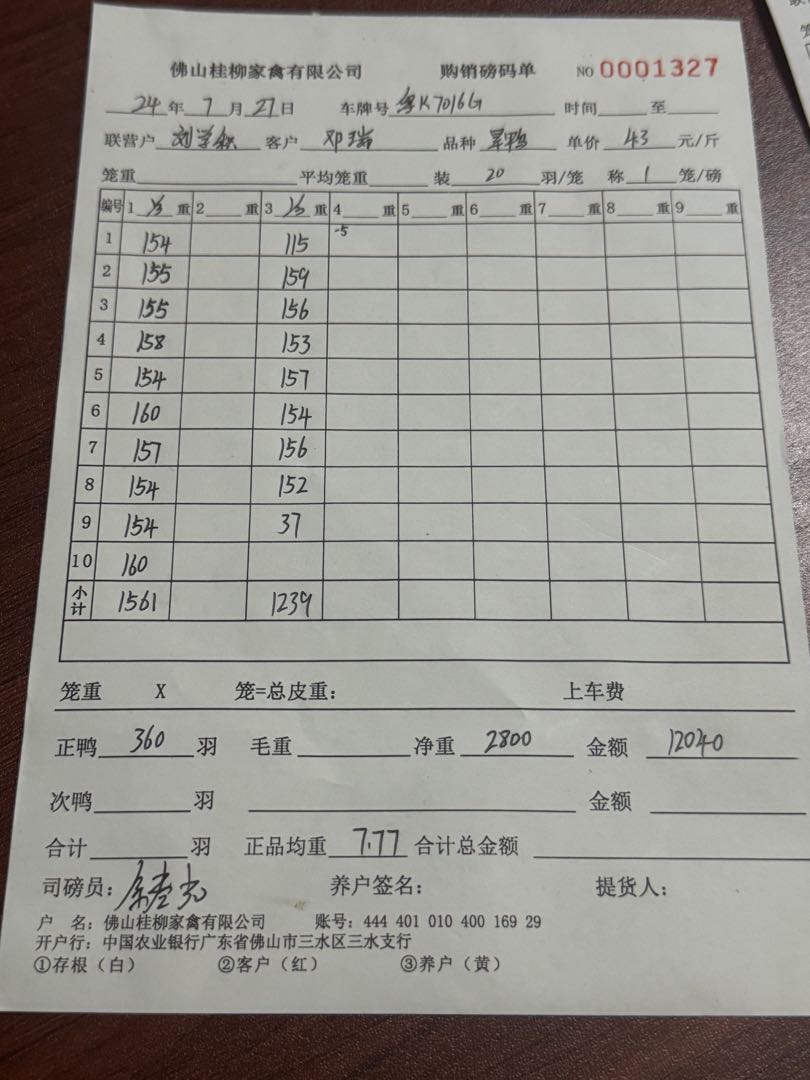 佛山桂柳家禽有限公司 购销磅码单 NO 0001327
24 年 7 月 27 日 车牌号 粤K7016G 时间 至
联营户 刘学 客户 邓瑞 品种 单价 43 元/斤
笼重 平均笼重 装 20 羽/笼 称 1 笼/磅
编号 1 重 2 重 3 重 4 重 5 重 6 重 7 重 8 重 9 重
1 154 115 -5
2 155 159
3 155 156
4 158 153
5 154 157
6 160 154
7 157 156
8 154 152
9 154 37
10 160
小计 1561 1239
笼重 X 笼=总皮重： 上车费
正鸭 360 羽 毛重 净重 2800 金额 12040
次鸭 羽 金额
合计 羽 正品均重 7.77 合计总金额
司磅员： 养户签名： 提货人：
户 名：佛山桂柳家禽有限公司 账号：444 401 010 400 169 29
开户行：中国农业银行广东省佛山市三水区三水支行
①存根（白） ②客户（红） ③养户（黄）